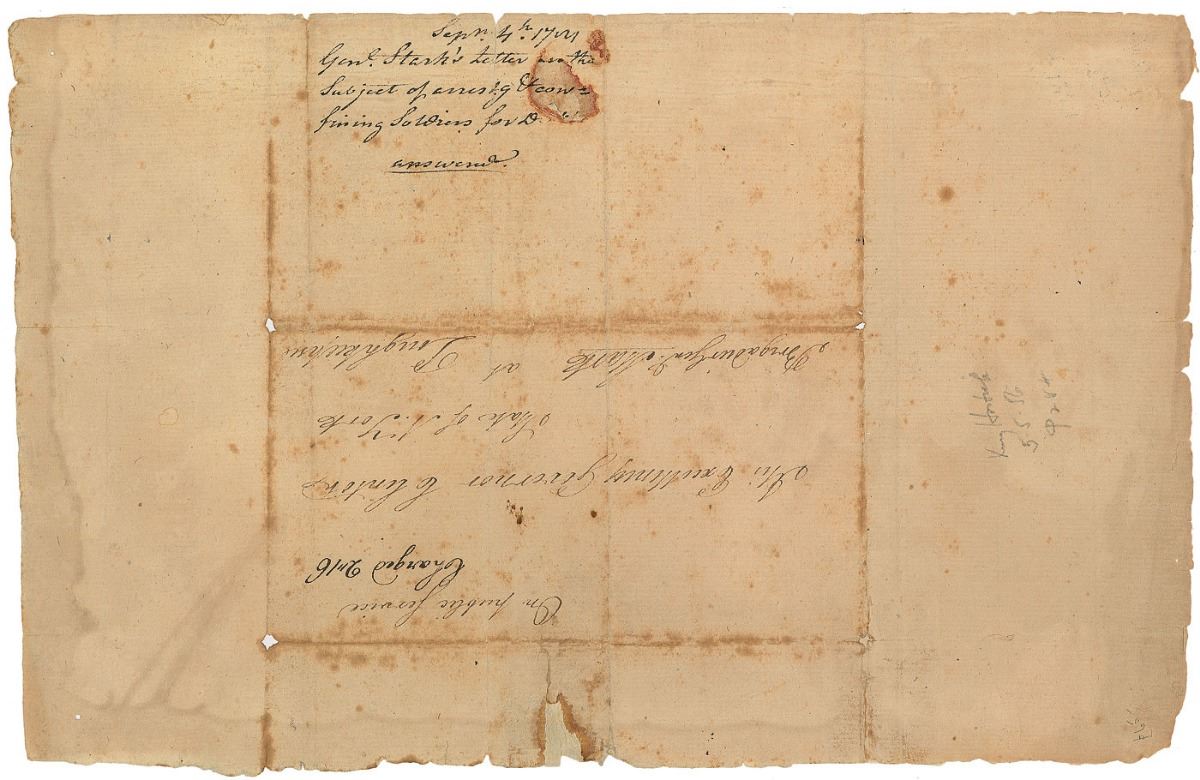 Sepr. 4th. 17
Genl. Stark's Letter on the
Subject of arrestg & con=
fining Soldiers for D
answered.
On public Service
Charged 2/16
His Excellency Governor Clinton
State of N. York
Brigadier Genl. Stark at Poughkeepsie
5.5.36